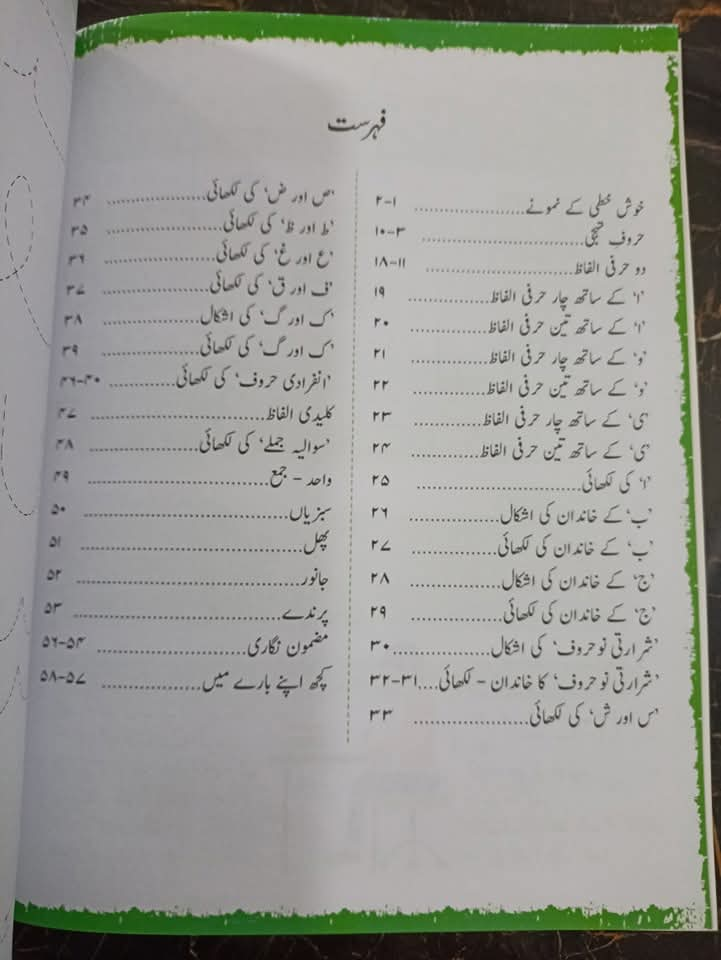 فہرست
خوش خطی کے نمونے......................۱-۲
حروفِ تہجی......................۳-۱۰
دو حرفی الفاظ......................۱۱-۱۸
'ا' کے ساتھ چار حرفی الفاظ......................۱۹
'ا' کے ساتھ تین حرفی الفاظ......................۲۰
'و' کے ساتھ چار حرفی الفاظ......................۲۱
'و' کے ساتھ تین حرفی الفاظ......................۲۲
'ی' کے ساتھ چار حرفی الفاظ......................۲۳
'ی' کے ساتھ تین حرفی الفاظ......................۲۴
'ا' کی لکھائی......................۲۵
'ب' کے خاندان کی اشکال......................۲۶
'ب' کے خاندان کی لکھائی......................۲۷
'ج' کے خاندان کی اشکال......................۲۸
'ج' کے خاندان کی لکھائی......................۲۹
'شرارتی نو حروف' کی اشکال......................۳۰
'شرارتی نو حروف' کا خاندان - لکھائی....۳۱-۳۲
'س اور ش' کی لکھائی......................۳۳
'ص اور ض' کی لکھائی......................۳۴
'ط اور ظ' کی لکھائی......................۳۵
'ع اور غ' کی لکھائی......................۳۶
'ف اور ق' کی لکھائی......................۳۷
'ک اور گ' کی اشکال......................۳۸
'ک اور گ' کی لکھائی......................۳۹
'انفرادی حروف' کی لکھائی......................۴۰-۴۶
کلیدی الفاظ......................۴۷
'سوالیہ جملے' کی لکھائی......................۴۸
واحد - جمع......................۴۹
سبزیاں......................۵۰
پھل......................۵۱
جانور......................۵۲
پرندے......................۵۳
مضمون نگاری......................۵۴-۵۶
کچھ اپنے بارے میں......................۵۷-۵۸